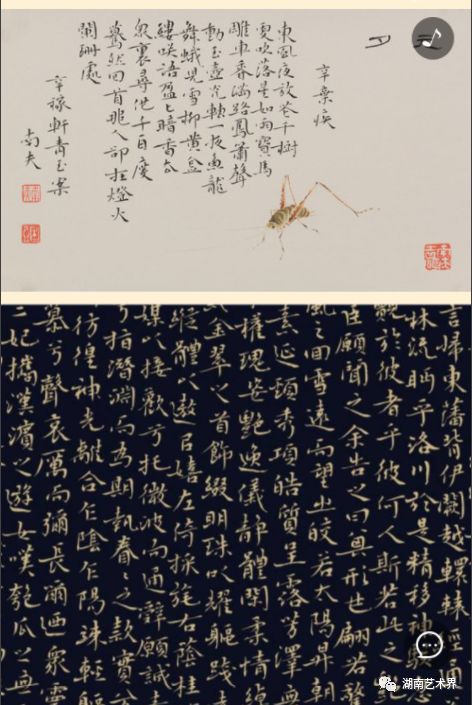 元夕
辛棄疾
東風夜放花千樹
更吹落星如雨寶馬
雕車香滿路鳳簫聲
動玉壺光轉一夜魚龍
舞蛾兒雪柳黃金
縷笑語盈々暗香去
眾裏尋他千百度
驀然回首那人卻在燈火
闌珊處
辛稼軒青玉案
南夫
言歸東藩背伊闕越轘轅經
林流眄乎洛川於是精移神駭忽
覩於彼者乎彼何人斯若此之
臣願聞之余告之曰其形也翩若驚
風之回雪遠而望之皎若太陽昇朝
素延頸秀項皓質呈露芳澤無
權瑰姿艷逸儀靜體閑柔情綽
金翠之首飾綴明珠以耀軀踐
縱體以遨以嬉左倚採旄右蔭桂
媒以接歡兮托微波而通辭願誠
兮指潛淵而為期執眷々之款實
彷徨神光離合乍陰乍陽竦輕軀
慕兮聲哀厲而彌長爾迺眾靈
二妃攜漢濱之遊女嘆匏瓜之無
湖南艺术界